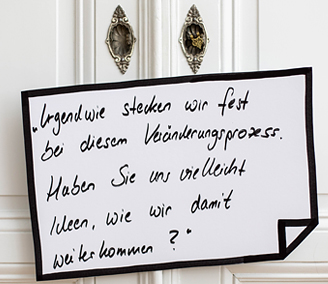 „Irgendwie stecken wir fest
bei diesem Veränderungsprozess.
Haben Sie uns vielleicht
Ideen, wie wir damit
weiterkommen ?“